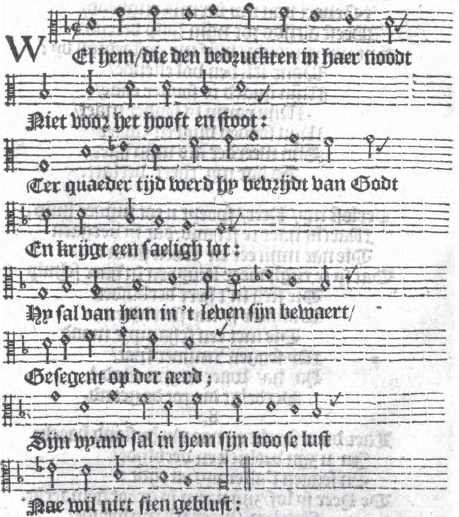 WEl hem/die den bedruckten in haer noodt
Niet voor het hooft en stoot:
Ter quaeder tijd werd hy bevrijdt van Godt
En krijgt een saeligh lot:
Hy sal van hem in 't leven sijn bewaert/
Gesegent op der aerd;
Sijn vyand sal in hem sijn boose lust
Nae wil niet sien geblust: